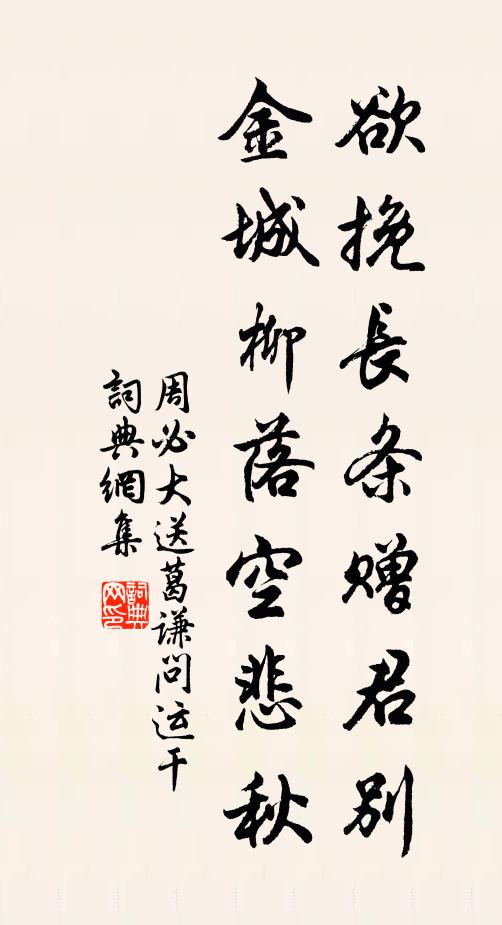 欲挽長条贈君別
金城柳落空悲秋
周必大送葛谦问运干
詞典網集
詞典网印